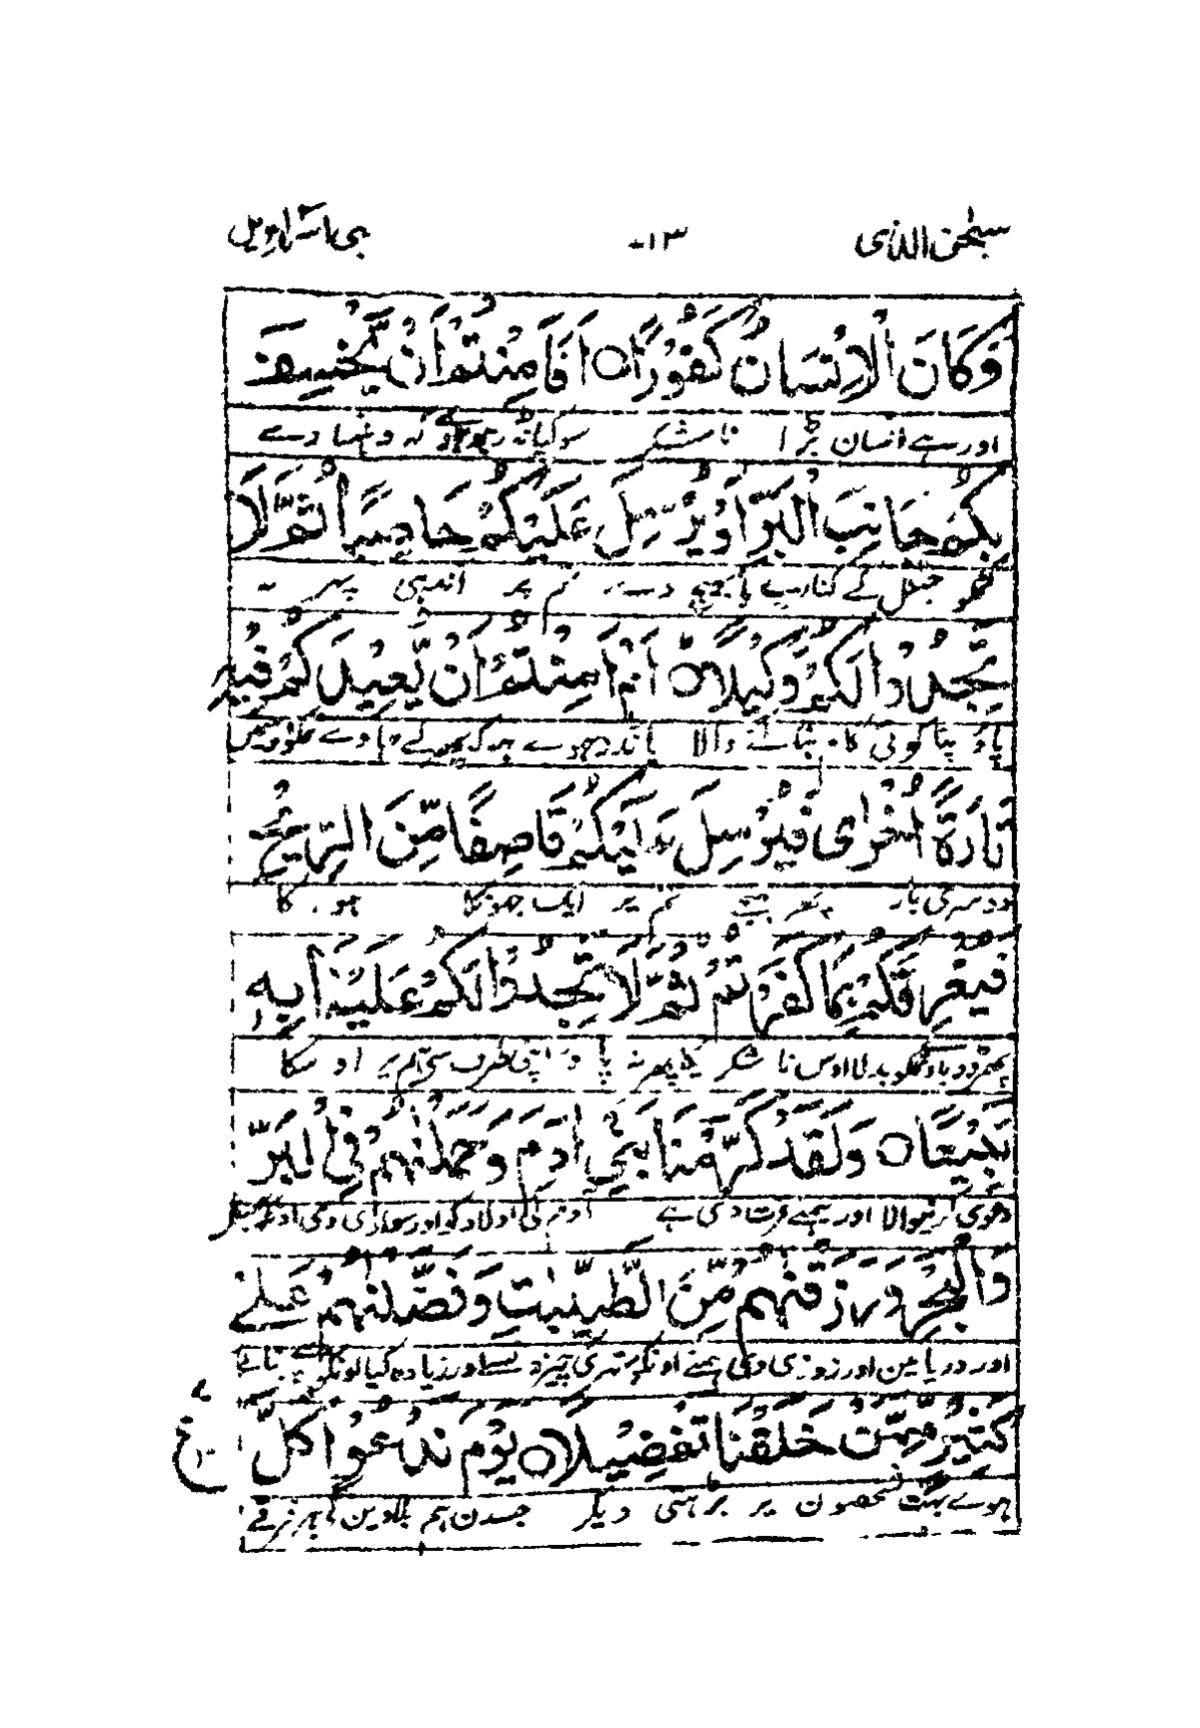 سبحن الذی ۱۳ بنی اسرآءیل
وَكَانَ الْاِنْسَانُ كَفُوْرًا ○ اَفَاَمِنْتُمْ اَنْ يَّخْسِفَ
اور ہے انسان بڑا ناشکر سو کیا نڈر ہو کہ دھنسا دے
بِكُمْ جَانِبَ الْبَرِّ اَوْ يُرْسِلَ عَلَيْكُمْ حَاصِبًا ثُمَّ لَا
تمکو جنگل کے کنارے یا بھیج دے تم پر اندھی پھر نہ
تَجِدُوْا لَكُمْ وَكِيْلًا ○ اَمْ اَمِنْتُمْ اَنْ يُّعِيْدَكُمْ فِيْهِ
پاؤ اپنا کوئی کام بنانے والا یا نڈر ہوے ہو کہ پھر لے جاوے تمکو
تَارَةً اُخْرٰى فَيُرْسِلَ عَلَيْكُمْ قَاصِفًا مِّنَ الرِّيْحِ
دوسری بار پھر بھیجے تم پر ایک جھونکا کا
فَيُغْرِقَكُمْ بِمَا كَفَرْتُمْ ثُمَّ لَا تَجِدُوْا لَكُمْ عَلَيْنَا بِهٖ
پھر ڈوباوے تمکو بدلا اوس ناشکر کا پھر نہ پاؤ اپنی طرف سے ہم پر اوسکا
تَبِيْعًا ○ وَلَقَدْ كَرَّمْنَا بَنِيْ اٰدَمَ وَحَمَلْنٰهُمْ فِي الْبَرِّ
دعوی کرنیوالا اور ہمنے عزت دی ہے آدم کی اولاد کو اور سواری دی اونکو
وَالْبَحْرِ وَرَزَقْنٰهُمْ مِّنَ الطَّيِّبٰتِ وَفَضَّلْنٰهُمْ عَلٰى
اور دریا مین اور روزی دی ہمنے اونکو ستھری چیزونسے اور زیادہ کیا اونکو
كَثِيْرٍ مِّمَّنْ خَلَقْنَا تَفْضِيْلًا ○ يَوْمَ نَدْعُوْا كُلَّ
ہوے بہت شخصون پر بڑھتی دیکر جسدن ہم بلاوین گے ہر فرقے
ع